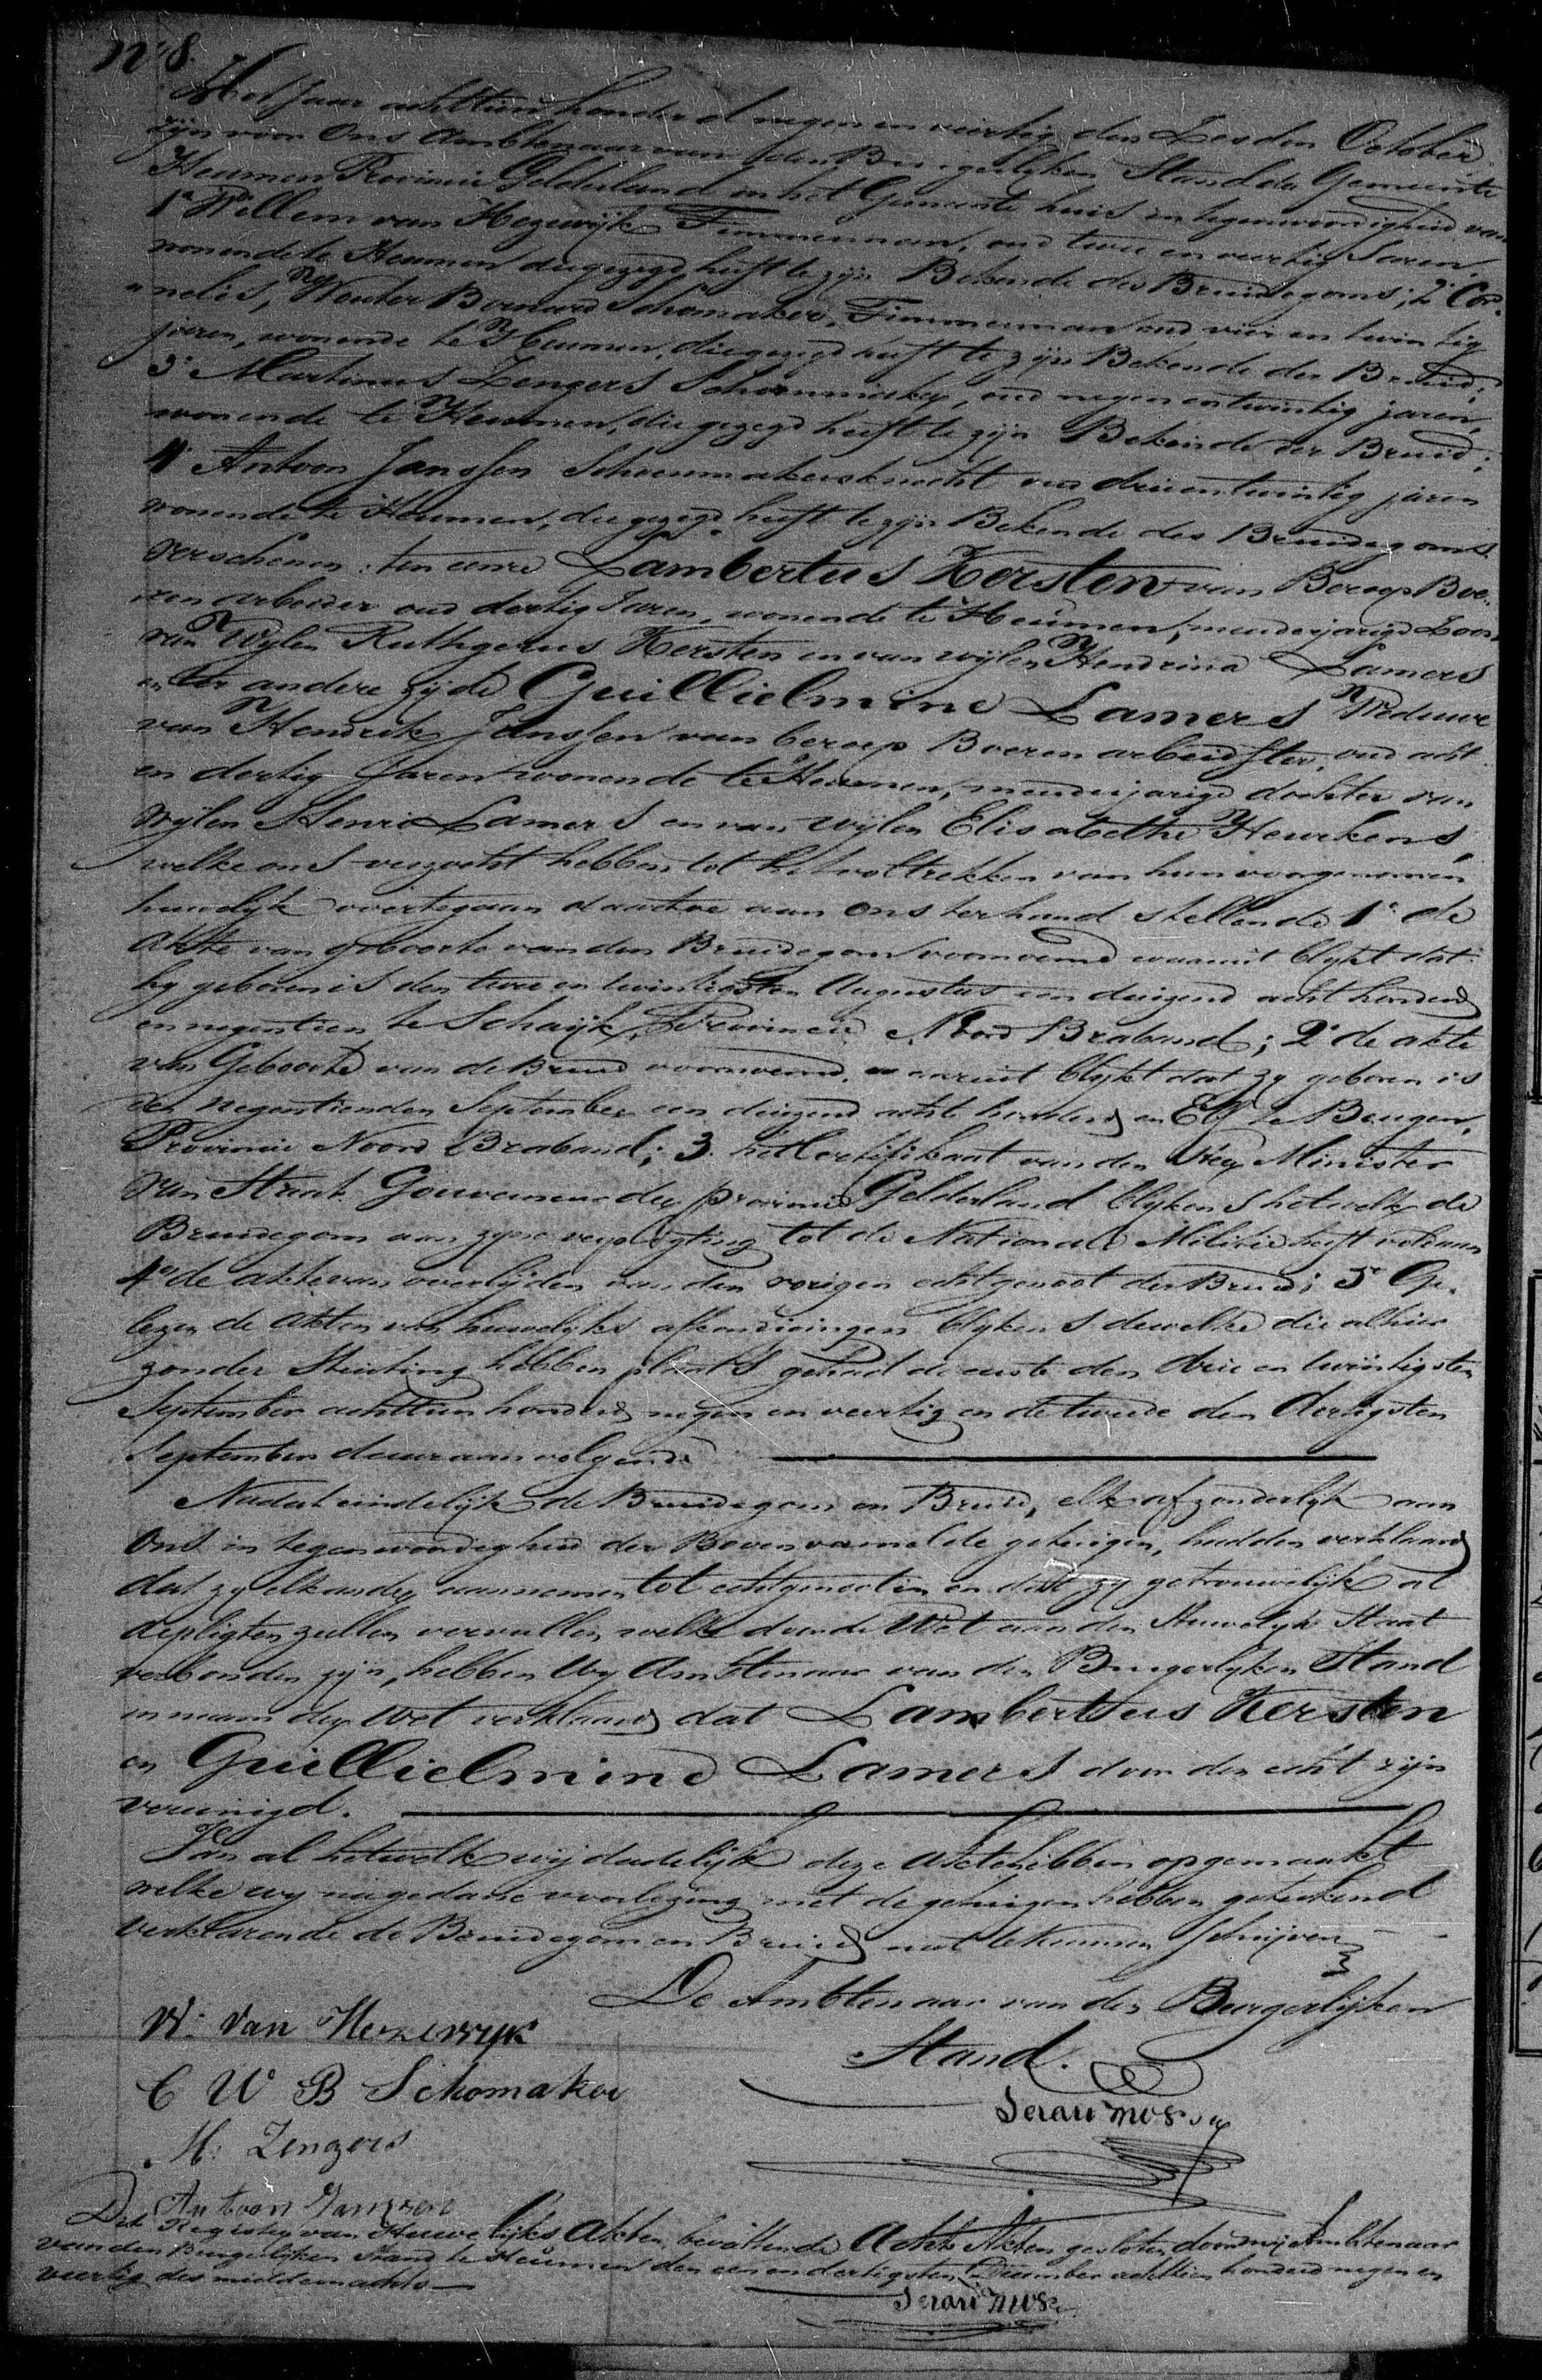 No 8.
Het Jaar achttien honderd negen en veertig den Zesden October
zijn voor Ons Ambtenaar van den Burgerlyken Stand der Gemeente
Heumen Provincie Gelderland in het Gemeente huis in tegenwoordigheid van
1e Willem van Hezewijk Timmerman, oud twee en veertig Jaren
wonende te Heumen die gezegd heeft te zijn Bekende des Bruidegoms; 2e Cor-
nelis, Wouter Bernard Schomaker, Timmerman oud vier en twintig
jaren, wonende te Heumen, die gezegd heeft te zijn Bekende der Bruid;
3e Martinus Zengers Schoenmaker, oud negen en twintig jaren,
wonende te Heumen, die gezegd heeft te zijn Bekende der Bruid;
4e Antoon Janssen Schoenmakersknecht oud drieentwintig jaren
wonende te Heumen, die gezegd heeft te zijn Bekende des Bruidegoms.
verschenen: ten eenre Lambertus Kersten van Beroep Boe-
ren arbeider oud dertig Jaren, wonende te Heumen, meerderjarige Zoon
van Wylen Ruthgerus Kersten en van wijlen Hendrina Lamers
en ter andere zijde Guillielmine Lamers Weduwe
van Hendrik Janssen van beroep Boeren arbeidster, oud acht
en dertig Jaren wonende te Heumen, meerderjarige dochter van
wijlen Henri Lamers en van wijlen Elisabetha Heurkens,
welke ons verzocht hebben tot het voltrekken van hun voorgenomen
huwelijk overtegaan daartoe aan ons ter hand stellende 1e de
akte van geboorte van den Bruidegom voornoemd waaruit blykt dat
hy geboren is den twee en twintigsten Augustus een duizend acht honderd
en negentien te Schaijk, Provincie Noord Braband; 2e de akte
van Geboorte van de Bruid voornoemd, waaruit blykt dat zy geboren is
den negentienden September een duizend acht honderd en Elf te Beugen,
Provincie Noord Braband; 3. het Certifikaat van den Heer Minister
van Staat Gouverneur der provincie Gelderland blykens hetwelk de
Bruidegom aan zyne verpligting tot de Nationale Militie heeft voldaan
4e de akte van overlijden van den vorigen echtgenoot der Bruid; 5e Ge-
lezen de Akten van huwelyks afkondigingen blykens dewelke die alhier
zonder Stuiting hebben plaats gehad de eerste den drie en twintigsten
September achttien honderd negen en veertig en de tweede den dertigsten
September daaraanvolgende
Nadat eindelijk de Bruidegom en Bruid, elk afzonderlyk aan
Ons in tegenwoordigheid der Bovenvermelde getuigen, hadden verklaard
dat zy elkander aannemen tot echtgenooten en dat zy getrouwelijk al
de pligten zullen vervullen welke door de Wet aan den Huwelyk Staat
verbonden zijn, hebben Wy Ambtenaar van den Burgerlyken Stand
in naam der Wet verklaard dat Lambertus Kersten
en Guillielmine Lamers door den echt zijn
vereenigd.
Van al hetwelk wij dadelijk deze Acte hebben opgemaakt
welke wy na gedane voorlezing met de getuigen hebben geteekend
verklarende de Bruidegom en Bruid niet te kunnen schrijven
De Ambtenaar van den Burgerlijken
Stand.
W: van Hezewyk
C W B Schomaker
M: Zengers
Antoon Janssen
Dit Register van Huwelijks Akten, bevattende Acht Akten gesloten door mij Ambtenaar
van den Burgerlijken Stand te Heumen den een en dertigsten December achttien honderd negen en
veertig des middernachts